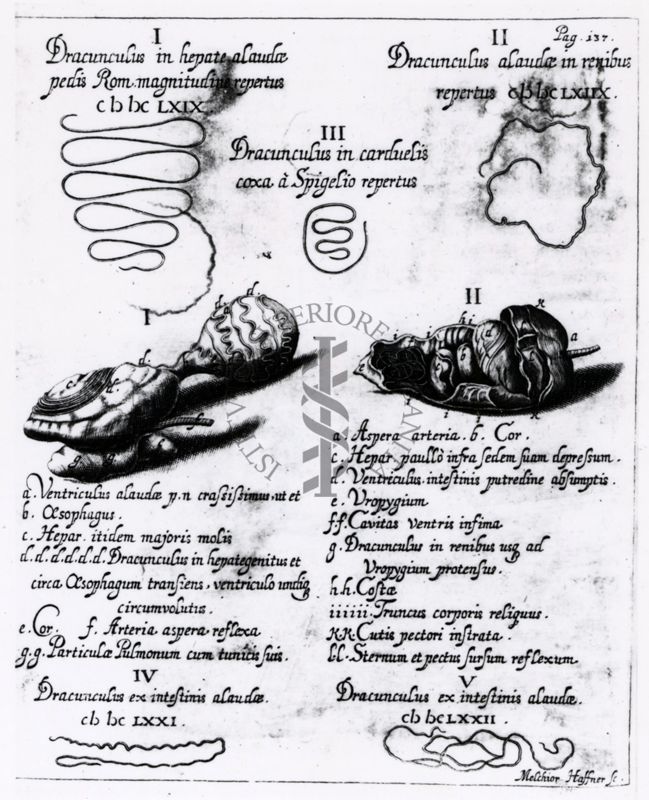 Pag. 137.
I
Dracunculus in hepate alaudæ
pedis Rom. magnitudine repertus
cIↃ IↃc LXIX.
II
Dracunculus alaudæ in renibus
repertus cIↃ IↃc LXIIX.
III
Dracunculus in carduelis
coxa à Spigelio repertus
I
II
a. Ventriculus alaudæ p.n crassissimus. ut et
b. Œsophagus.
c. Hepar itidem majoris molis
d.d.d.d.d.d. Dracunculus in hepate genitus et
circa Œsophagum transiens, ventriculo undiq
circumvolutus.
e. Cor. f. Arteria aspera reflexa
g.g. Particulæ Pulmonum cum tunicis suis.
a. Aspera arteria. b. Cor.
c. Hepar paullò infra sedem suam depressum.
d. Ventriculus intestinis putredine absumptis.
e. Uropygium
f.f. Cavitas ventris infima
g. Dracunculus in renibus usq ad
Uropygium protensus.
h.h. Costæ
iiiiii. Truncus corporis reliquus.
K.K. Cutis pectori instrata.
l.l. Sternum et pectus sursum reflexum
IV
Dracunculus ex intestinis alaudæ.
cIↃ IↃc LXXI.
V
Dracunculus ex intestinis alaudæ.
cIↃ IↃc LXXII.
Melchior Haffner sc.